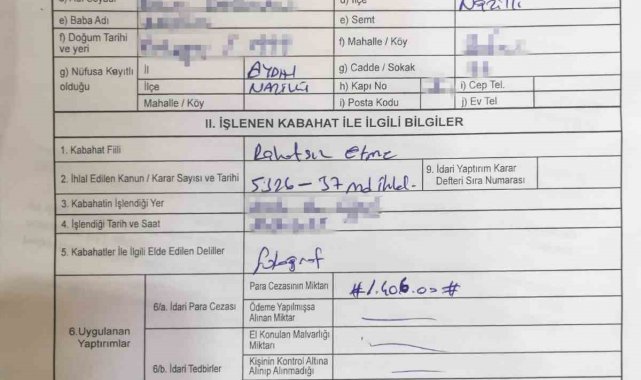 d) İlçe Nazilli
e) Baba Adı e) Semt
f) Doğum Tarihi ve yeri f) Mahalle / Köy
g) Nüfusa Kayıtlı olduğu İl AYDIN g) Cadde / Sokak
İlçe NAZİLLİ h) Kapı No i) Cep Tel.
Mahalle / Köy i) Posta Kodu j) Ev Tel
II. İŞLENEN KABAHAT İLE İLGİLİ BİLGİLER
1. Kabahat Fiili Rahatsız etme
2. İhlal Edilen Kanun / Karar Sayısı ve Tarihi 5326-37 md ihlal. 9. İdari Yaptırım Karar Defteri Sıra Numarası
3. Kabahatin İşlendiği Yer
4. İşlendiği Tarih ve Saat
5. Kabahatler İle İlgili Elde Edilen Deliller fotoğraf
6.Uygulanan Yaptırımlar
6/a. İdari Para Cezası
Para Cezasının Miktarı #1.406.00#
Ödeme Yapılmışsa Alınan Miktar
6/b. İdari Tedbirler
El Konulan Malvarlığı Miktarı
Kişinin Kontrol Altına Alınıp Alınmadığı